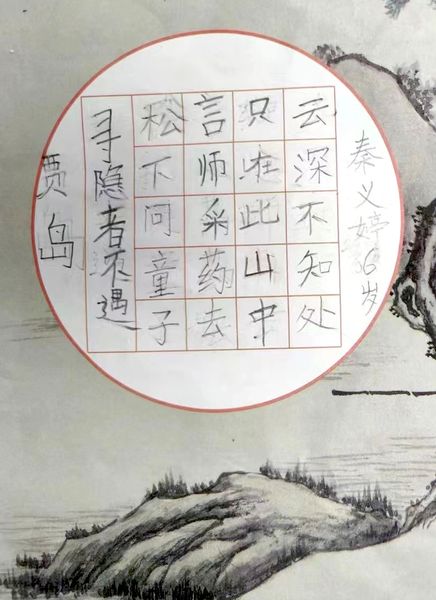 寻隐者不遇
贾岛
松下问童子
言师采药去
只在此山中
云深不知处
秦义婷 6岁